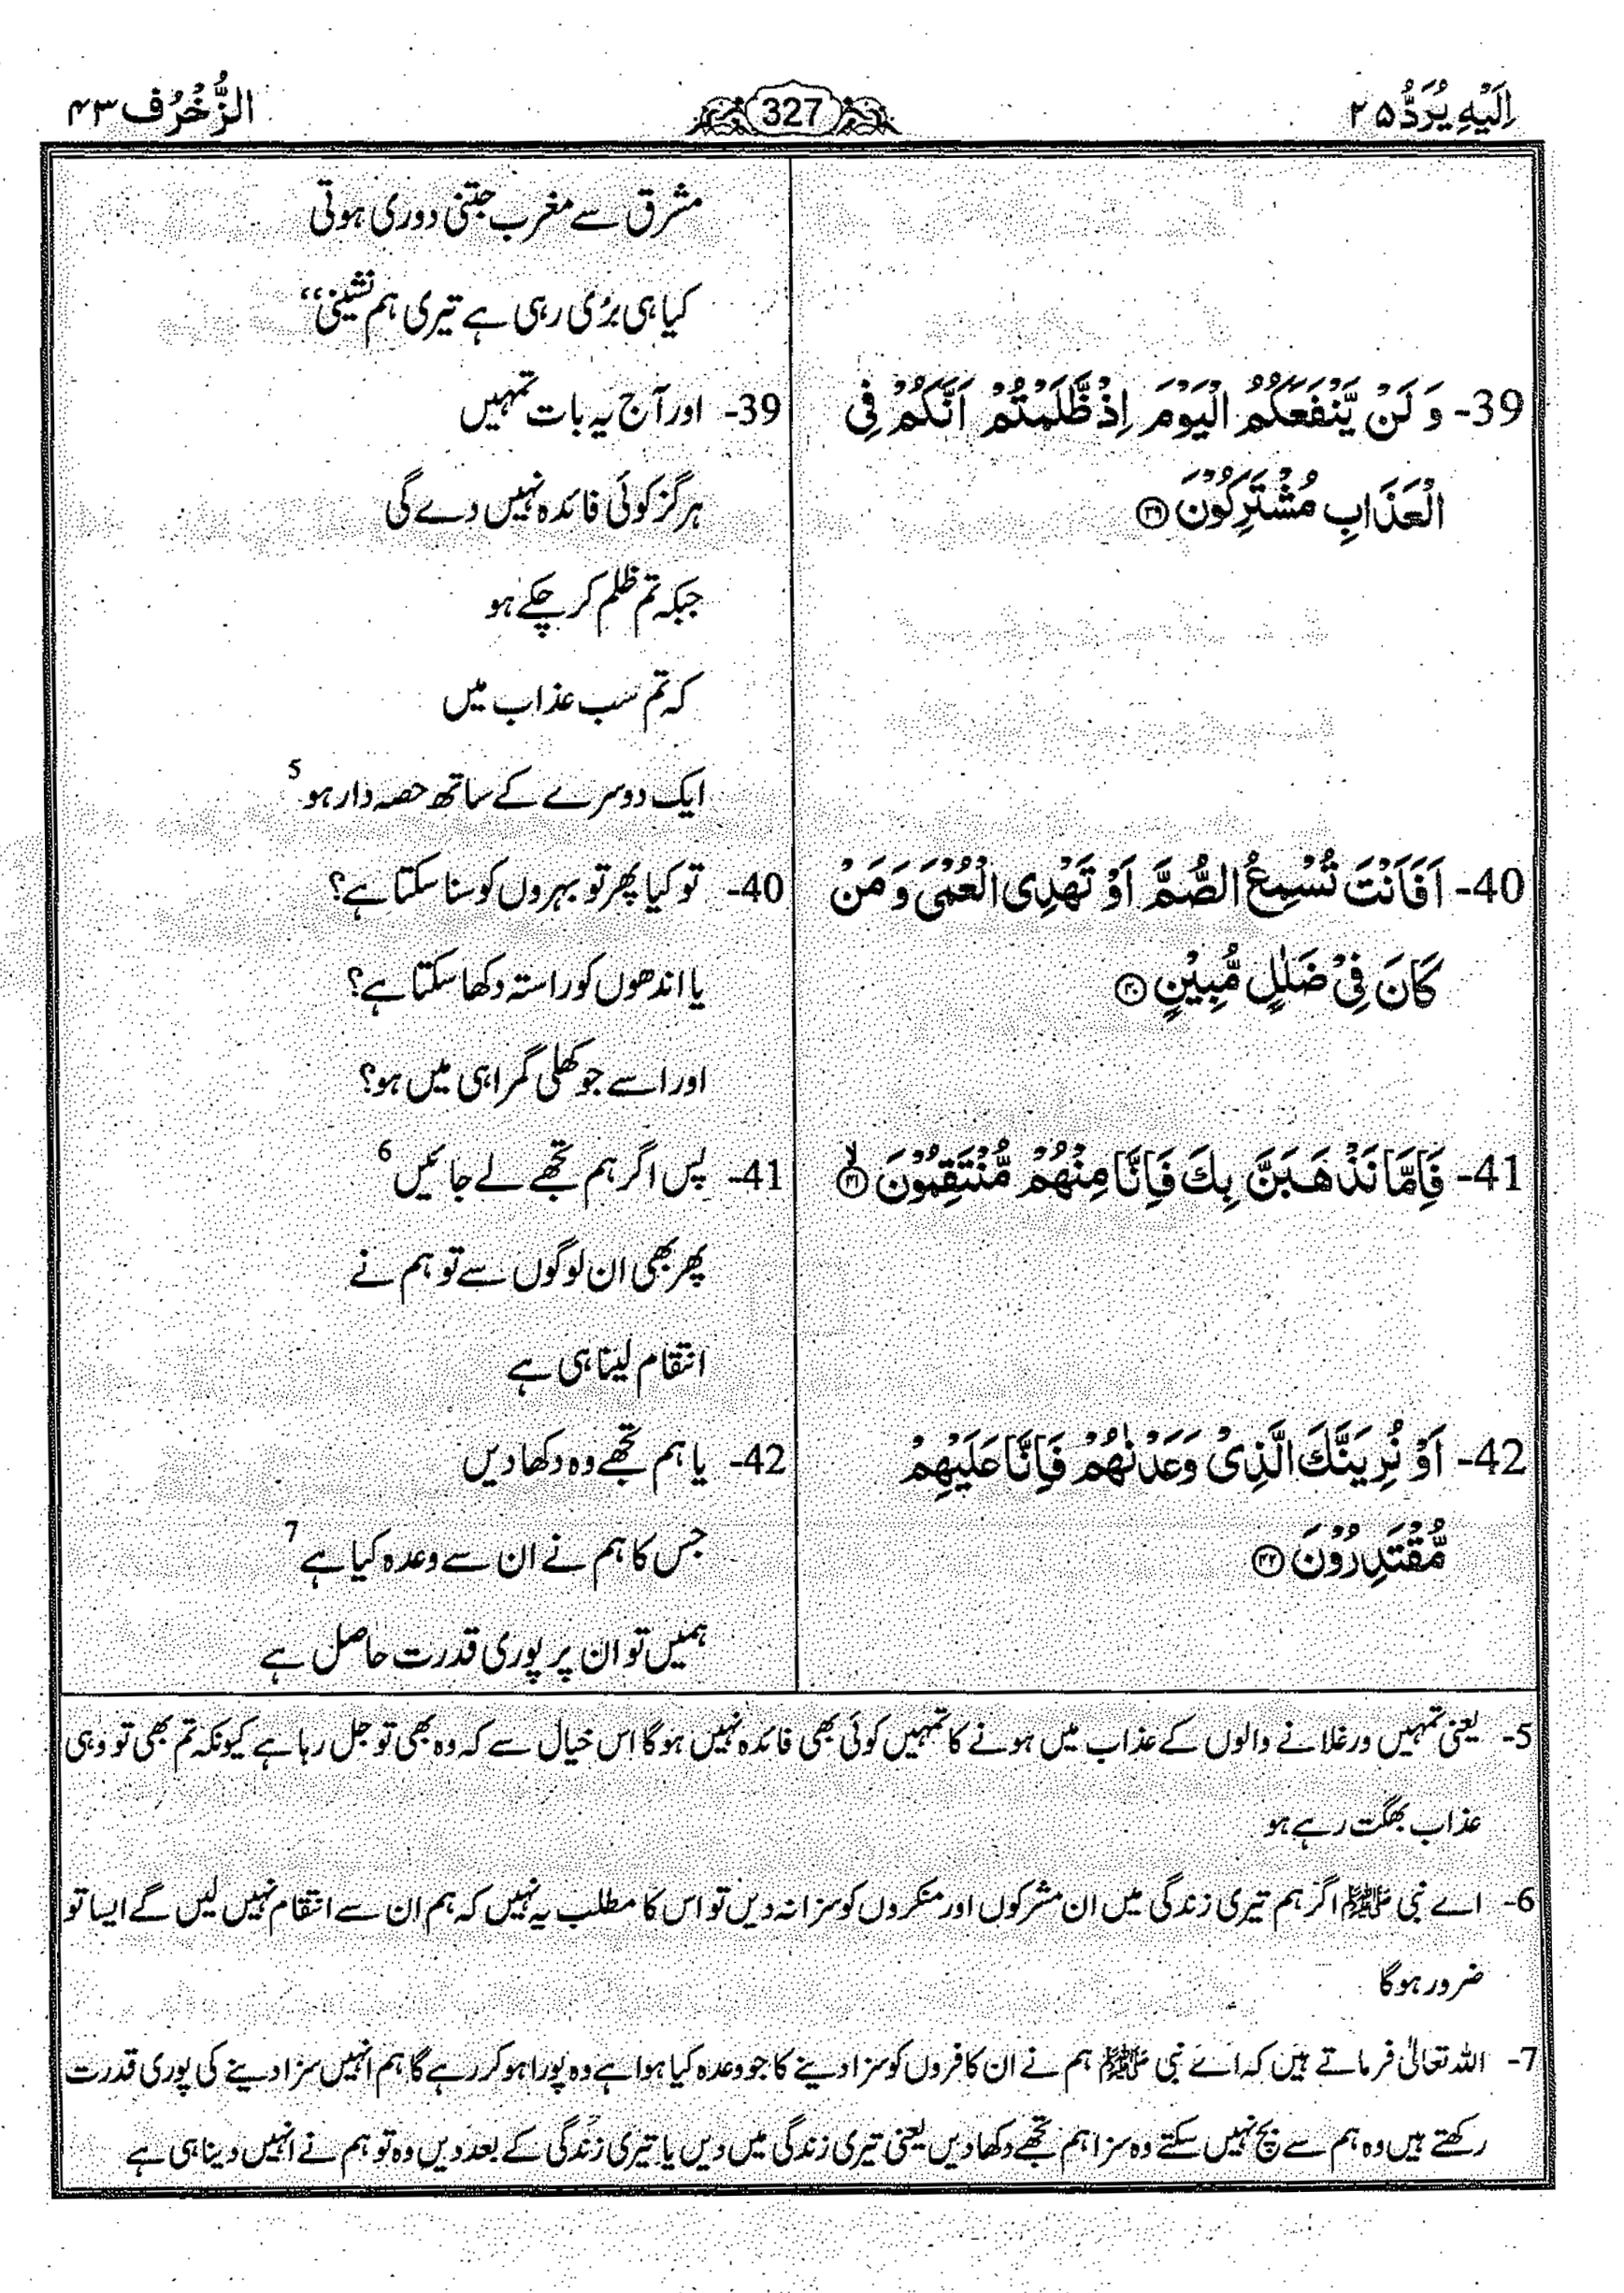 اِلَيْهِ يُرَدُّ ۲۵
327
الزُّخْرُف ۴۳
مشرق سے مغرب جتنی دوری ہوتی
کیا ہی بُری رہی ہے تیری ہم نشینی“
39- وَ لَنْ يَّنْفَعَكُمُ الْيَوْمَ اِذْ ظَّلَمْتُمْ اَنَّكُمْ فِی
الْعَذَابِ مُشْتَرِكُوْنَ ۳۹
39- اور آج یہ بات تمہیں
ہرگز کوئی فائدہ نہیں دے گی
جبکہ تم ظلم کر چکے ہو
کہ تم سب عذاب میں
ایک دوسرے کے ساتھ حصہ دار ہو 5
40- اَفَاَنْتَ تُسْمِعُ الصُّمَّ اَوْ تَهْدِی الْعُمْیَ وَ مَنْ
كَانَ فِیْ ضَلٰلٍ مُّبِيْنٍ ۴۰
40- تو کیا پھر تو بہروں کو سنا سکتا ہے؟
یا اندھوں کو راستہ دکھا سکتا ہے؟
اور اسے جو کھلی گمراہی میں ہو؟
41- فَاِمَّا نَذْهَبَنَّ بِكَ فَاِنَّا مِنْهُمْ مُّنْتَقِمُوْنَ ۙ۴۱
41- پس اگر ہم تجھے لے جائیں 6
پھر بھی ان لوگوں سے تو ہم نے
انتقام لینا ہی ہے
42- اَوْ نُرِيَنَّكَ الَّذِیْ وَعَدْنٰهُمْ فَاِنَّا عَلَيْهِمْ
مُّقْتَدِرُوْنَ ۴۲
42- یا ہم تجھے وہ دکھا دیں
جس کا ہم نے ان سے وعدہ کیا ہے 7
ہمیں تو ان پر پوری قدرت حاصل ہے
5- یعنی تمہیں ورغلانے والوں کے عذاب میں ہونے کا تمہیں کوئی بھی فائدہ نہیں ہوگا اس خیال سے کہ وہ بھی تو جل رہا ہے کیونکہ تم بھی تو وہی
عذاب بھگت رہے ہو
6- اے نبی ﷺ اگر ہم تیری زندگی میں ان مشرکوں اور منکروں کو سزا نہ دیں تو اس کا مطلب یہ نہیں کہ ہم ان سے انتقام نہیں لیں گے ایسا تو
ضرور ہوگا
7- اللہ تعالیٰ فرماتے ہیں کہ اے نبی ﷺ ہم نے ان کافروں کو سزا دینے کا جو وعدہ کیا ہوا ہے وہ پورا ہو کر رہے گا ہم انہیں سزا دینے کی پوری قدرت
رکھتے ہیں وہ ہم سے بچ نہیں سکتے وہ سزا ہم تجھے دکھا دیں یعنی تیری زندگی میں دیں یا تیری زندگی کے بعد دیں وہ تو ہم نے انہیں دینا ہی ہے